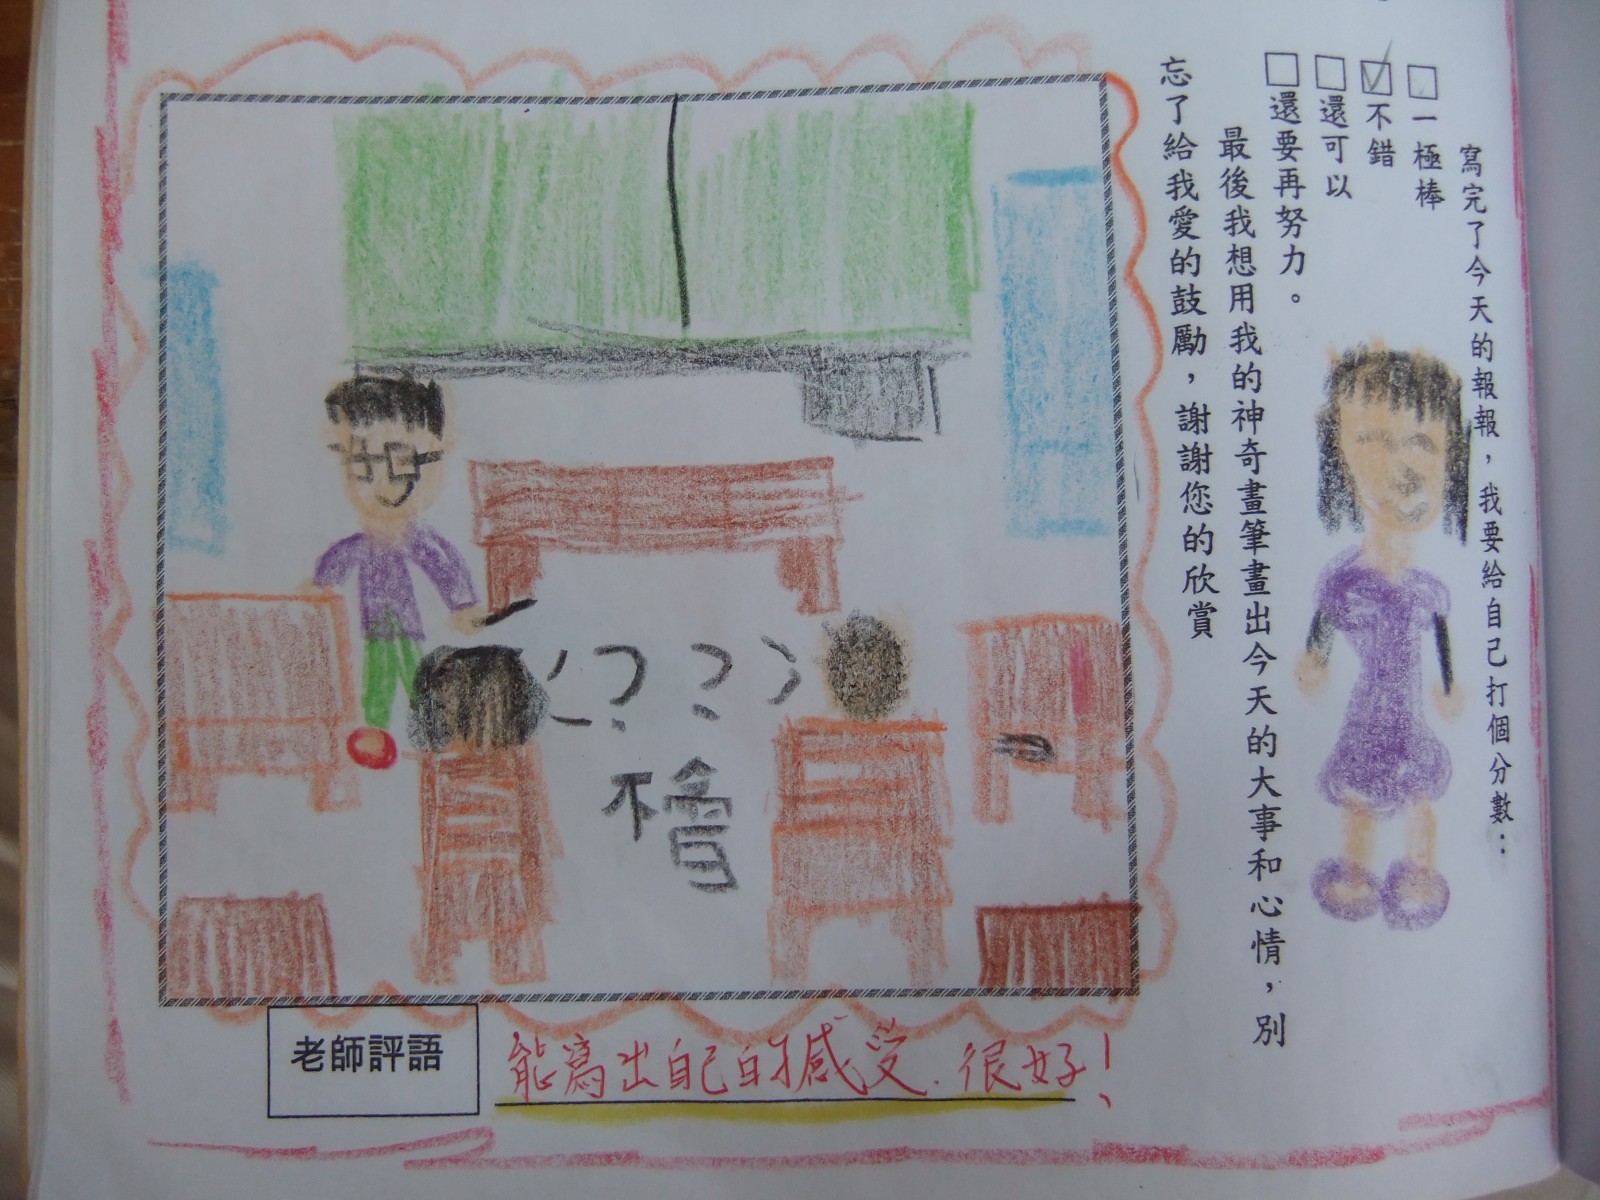 寫完了今天的報報，我要給自己打個分數：
□一極棒
☑不錯
□還可以
□還要再努力。
最後我想用我的神奇畫筆畫出今天的大事和心情，別
忘了給我愛的鼓勵，謝謝您的欣賞
??
不會
老師評語
能寫出自己的感受.很好!